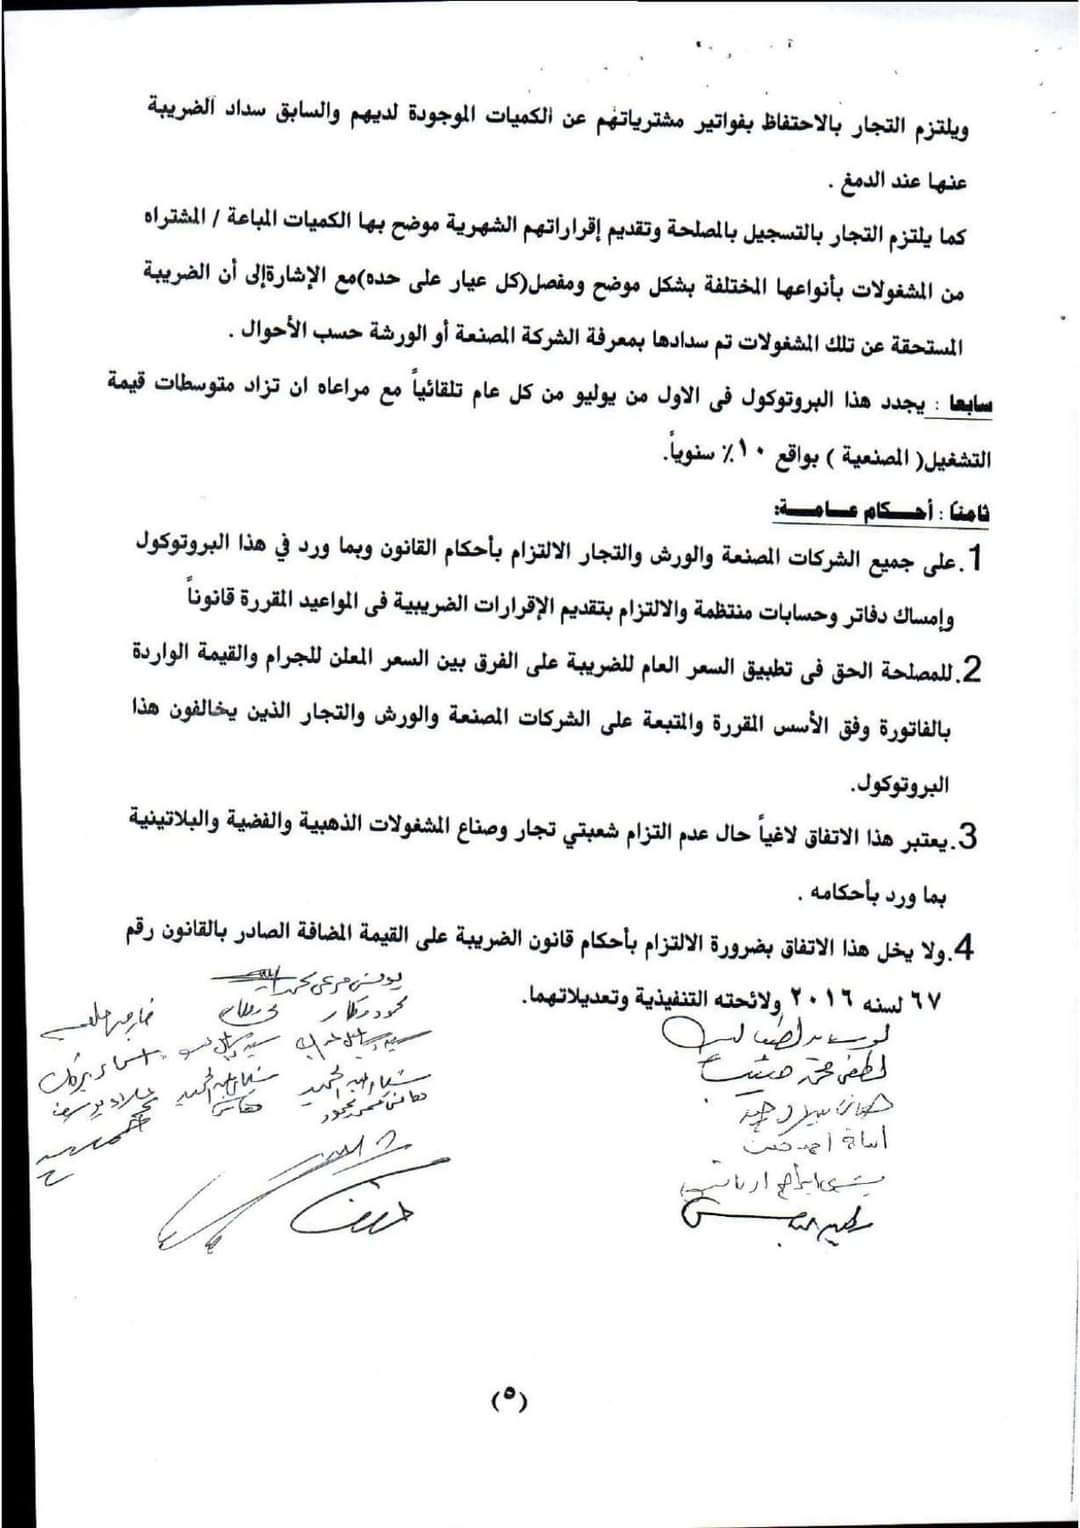 ويلتزم التجار بالاحتفاظ بفواتير مشترياتهم عن الكميات الموجودة لديهم والسابق سداد الضريبة
عنها عند الدمغ .
كما يلتزم التجار بالتسجيل بالمصلحة وتقديم إقراراتهم الشهرية موضح بها الكميات المباعة / المشتراه
من المشغولات بأنواعها المختلفة بشكل موضح ومفصل(كل عيار على حده)مع الإشارةإلى أن الضريبة
المستحقة عن تلك المشغولات تم سدادها بمعرفة الشركة المصنعة أو الورشة حسب الأحوال .
سابعا : يجدد هذا البروتوكول فى الاول من يوليو من كل عام تلقائياً مع مراعاه ان تزاد متوسطات قيمة
التشغيل( المصنعية ) بواقع ١٠٪ سنوياً.
ثامنا : أحـــكام عـــامـــة:
1.على جميع الشركات المصنعة والورش والتجار الالتزام بأحكام القانون وبما ورد في هذا البروتوكول
وإمساك دفاتر وحسابات منتظمة والالتزام بتقديم الإقرارات الضريبية فى المواعيد المقررة قانوناً
2.للمصلحة الحق فى تطبيق السعر العام للضريبة على الفرق بين السعر المعلن للجرام والقيمة الواردة
بالفاتورة وفق الأسس المقررة والمتبعة على الشركات المصنعة والورش والتجار الذين يخالفون هذا
البروتوكول.
3.يعتبر هذا الاتفاق لاغياً حال عدم التزام شعبتي تجار وصناع المشغولات الذهبية والفضية والبلاتينية
بما ورد بأحكامه .
4.ولا يخل هذا الاتفاق بضرورة الالتزام بأحكام قانون الضريبة على القيمة المضافة الصادر بالقانون رقم
٦٧ لسنه ٢٠١٦ ولائحته التنفيذية وتعديلاتهما.
لطفى محمد
هانى محمد محمود
(٥)